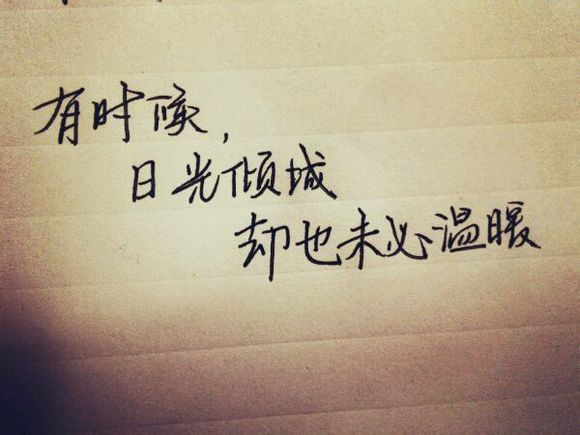 有时候，
日光倾城
却也未必温暖